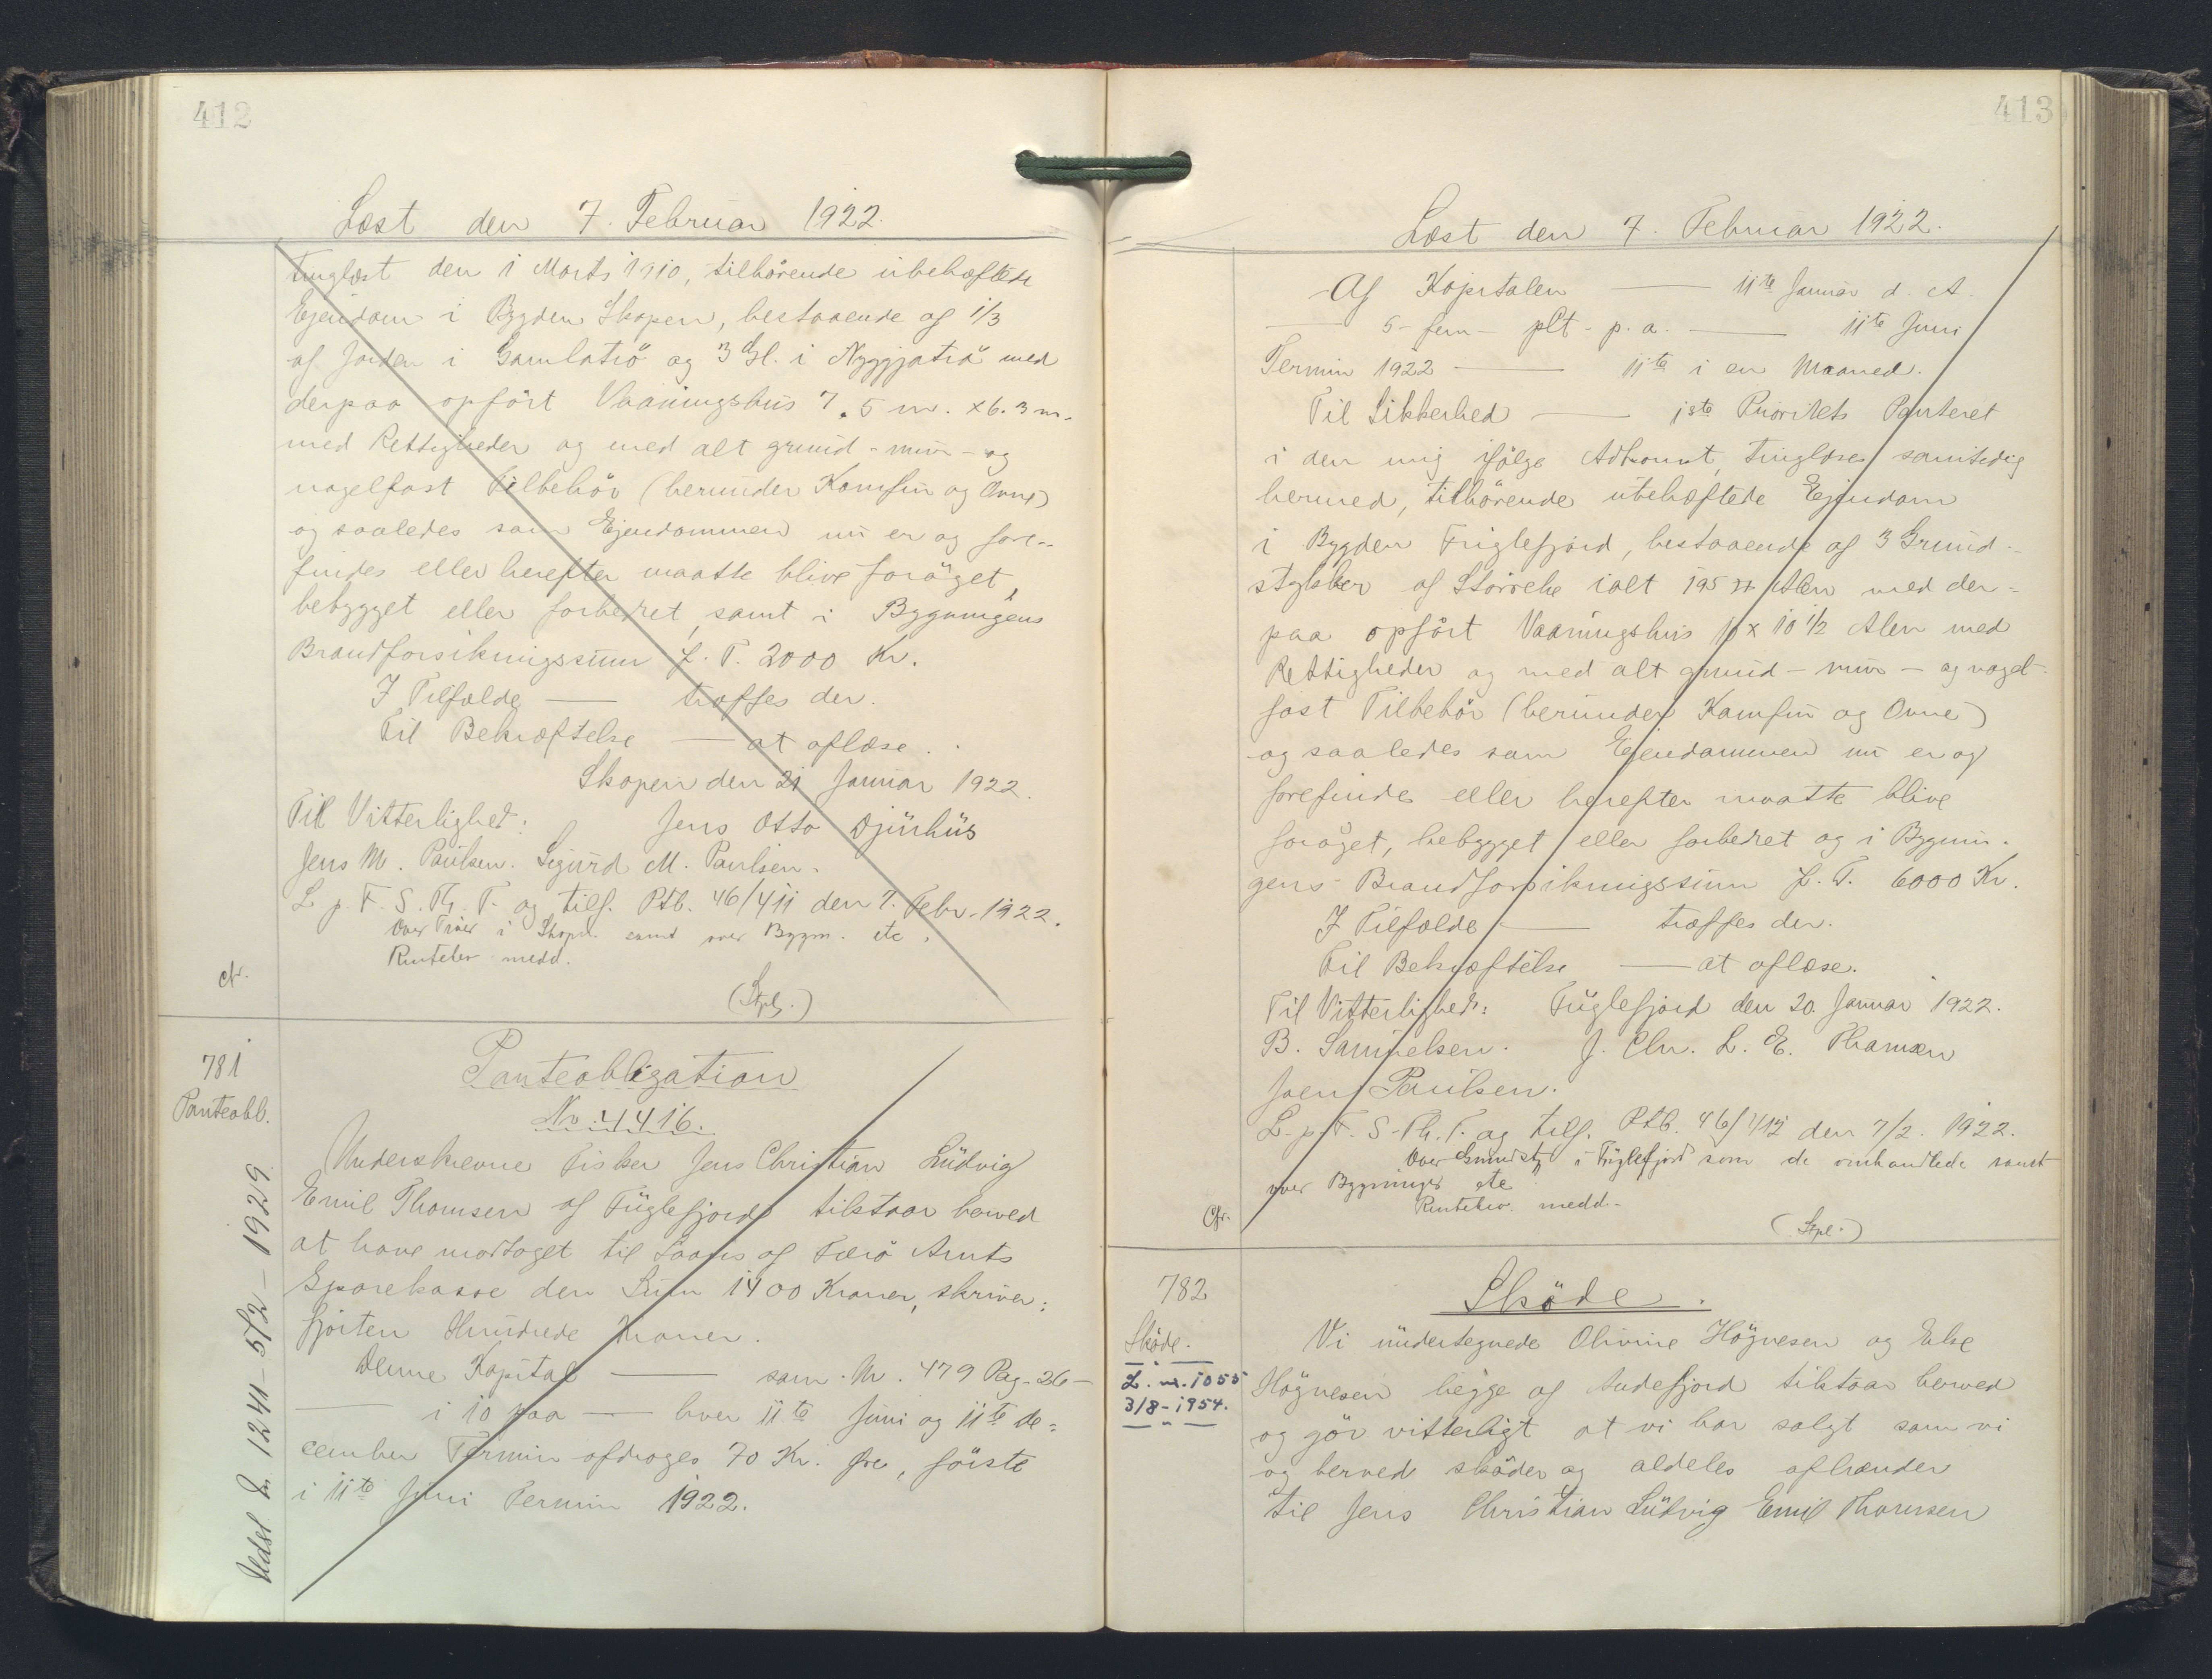 412
Læst den 7. Februar 1922.
tinglæst den 1 Marts 1910, tilhörende übehæftede
Ejendom i Bygden Skopen, bestaaende af 1/3
af Jorden i Gamlatrö og 3 Gl. i Nyggjatrö med
derpaa opfört Vaaningshüs 7.5 m. x 6.3 m.
med Rettigheder og med alt grund - mür - og
nagelfast Tilbehör (herunder Komfür og Ovne)
og saaledes som Ejendommen nü er og fore-
findes eller herefter maatte blive foröget,
bebygget eller forbedret, samt i Bygningens
Brandforsikringssüm f. T. 2000 Kr.
I Tilfælde — træffes der.
Til Bekræftelse — at aflæse.
Skopen den 21 Januar 1922.
Til Vitterlighed: Jens Otto Djürhüs
Jens M. Paülsen. Sigürd M. Paulsen.
L. p. F. S. Th. T. og tilf. Ptb. 46/411 den 7. Febr. 1922.
Over Tröer i Skopen samt over Bygn. etc.
Rentebev. medd.
cfr.
(Stpl.)
781
Panteobl.
Udsl. L. 1241 - 5/2 - 1929
Panteobligation
No. 4416.
Underskrevne Fisker Jens Christian Lüdvig
Emil Thomsen af Füglefjord tilstaar herved
at have modtaget til Laans af Færö Amts
Sparekasse den Süm 1400 Kroner, skriver:
fjorten Hündrede Kroner.
Denne Kapital — som Nr. 479 Pag. 26 -
— i 10 paa — hver 11te Juni og 11te De-
cember Termin afdrages 70 Kr. Öre, förste
i 11te Juni Termin 1922.
413
Læst den 7. Februar 1922.
Af Kapitalen — 11te Januar d. A.
— 5 - fem - pCt. p. a. — 11te Juni
Termin 1922 — 11te i en Maaned.
Til Sikkerhed — 1ste Prioritets Panteret
i den mig ifölge Adkomst, tinglæses samtidig
hermed, tilhörende übehæftede Ejendom
i Bygden Füglefjord, bestaaende af 3 Grund-
stykker af Störrelse ialt 195 □ Alen med der-
paa opfört Vaaningshüs 10 x 10 1/2 Alen med
Rettigheder og med alt grund - mür - og nagel-
fast Tilbehör (herunder Komfür og Ovne)
og saaledes som Ejendommen nü er og
forefindes eller herefter maatte blive
foröget, bebygget eller forbedret og i Bygnin-
gens Brandforsikringssüm f. T. 6000 Kr.
I Tilfælde — træffes der.
Til Bekræftelse — at aflæse.
Til Vitterlighed: Füglefjord den 20. Januar 1922.
B. Samüelsen. J. Chr. L. E. Thomsen
Joen Paülsen.
L. p. F. S. Th. T. og tilf. Ptb. 46/412 den 7/2. 1922.
Over Grundst. i Füglefjord som de omhandlede samt
over Bygninger etc
Rentebev. medd.
Cfr.
(Stpl.)
782
Sköde.
L. nr. 1055
3/8 - 1954.
Sköde.
Vi ündertegnede Olivine Högnesen og Else
Högnesen begge af Andefjord tilstaar herved
og gör vitterligt at vi har solgt som vi
og herved sköder og aldeles afhænder
til Jens Christian Lüdvig Emil Thomsen